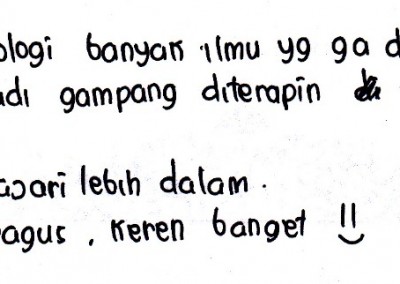 ologi banyak ilmu yg ga d
adi gampang diterapin
ajari lebih dalam.
agus, keren banget !!